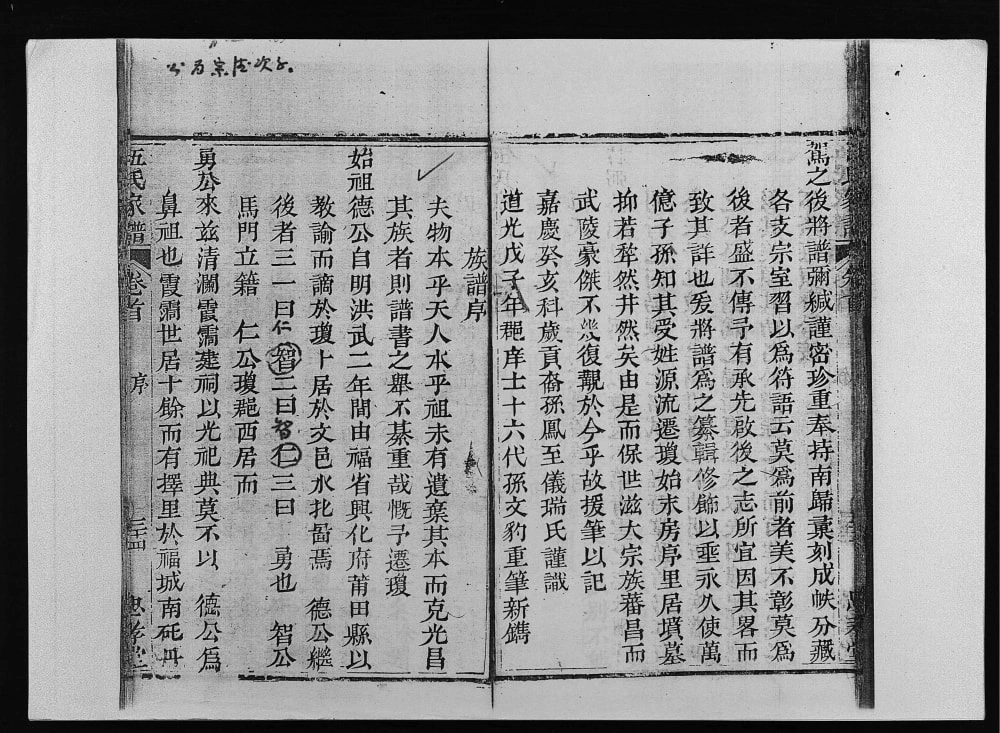 駕之後將譜彌緘謹密珍重奉持南歸稾刻成帙分藏
各支宗室習以爲符語云莫爲前者美不彰莫爲
後者盛不傳予有承先啟後之志所宜因其畧而
致其詳也爰將譜爲之纂輯修飾以垂永久使萬
億子孫知其受姓源流遷瓊始末房序里居墳墓
抑若犂然井然矣由是而保世滋大宗族蕃昌而
武陵豪傑不幾復覯於今乎故援筆以記
嘉慶癸亥科歲貢裔孫鳳至儀瑞氏謹識
道光戊子年郡庠士十六代孫文豹重筆新鐫
族譜序
夫物本乎天人水乎祖未有遺棄其本而克光昌
其族者則譜書之舉不綦重哉慨予遷瓊
始祖德公自明洪武二年間由福省興化府莆田縣以
教諭而謫於瓊卜居於文邑水北啚焉 德公繼
後者三一曰仁智二曰智仁三曰 勇也 智公
馬門立籍 仁公瓊郡西居而
勇公來兹清瀾霞霱建祠以光祀典莫不以 德公爲
鼻祖也霞霱世居十餘而有擇里於福城南砥丹
伍氏家譜 卷首 序 三十四 忠孝堂
公为宗德次子。